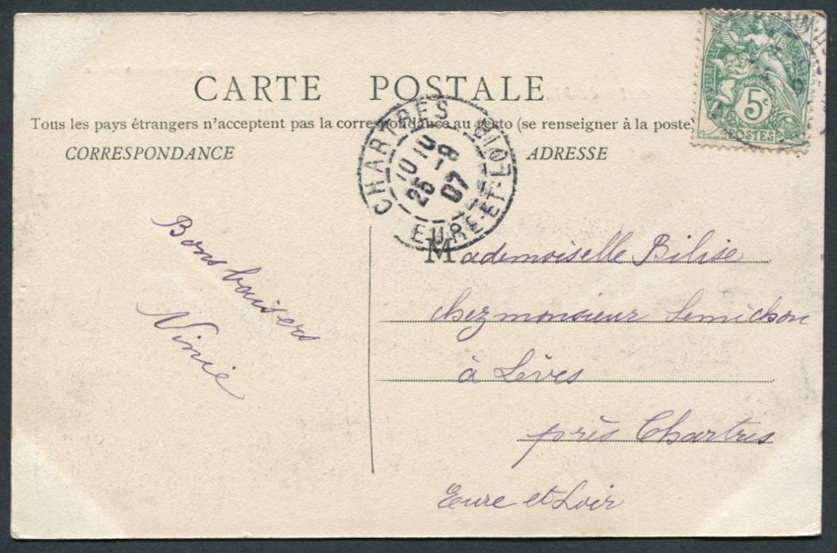 CARTE POSTALE
Tous les pays étrangers n'acceptent pas la correspondance au recto (se renseigner à la poste)
CORRESPONDANCE
ADRESSE
5c
POSTES
CHARTRES EURE-ET-LOIR
10 10
26 -8
07
Bons baisers
Ninie
Mademoiselle Bilise
chez monsieur Semichon
à Lèves
près Chartres
Eure et Loir